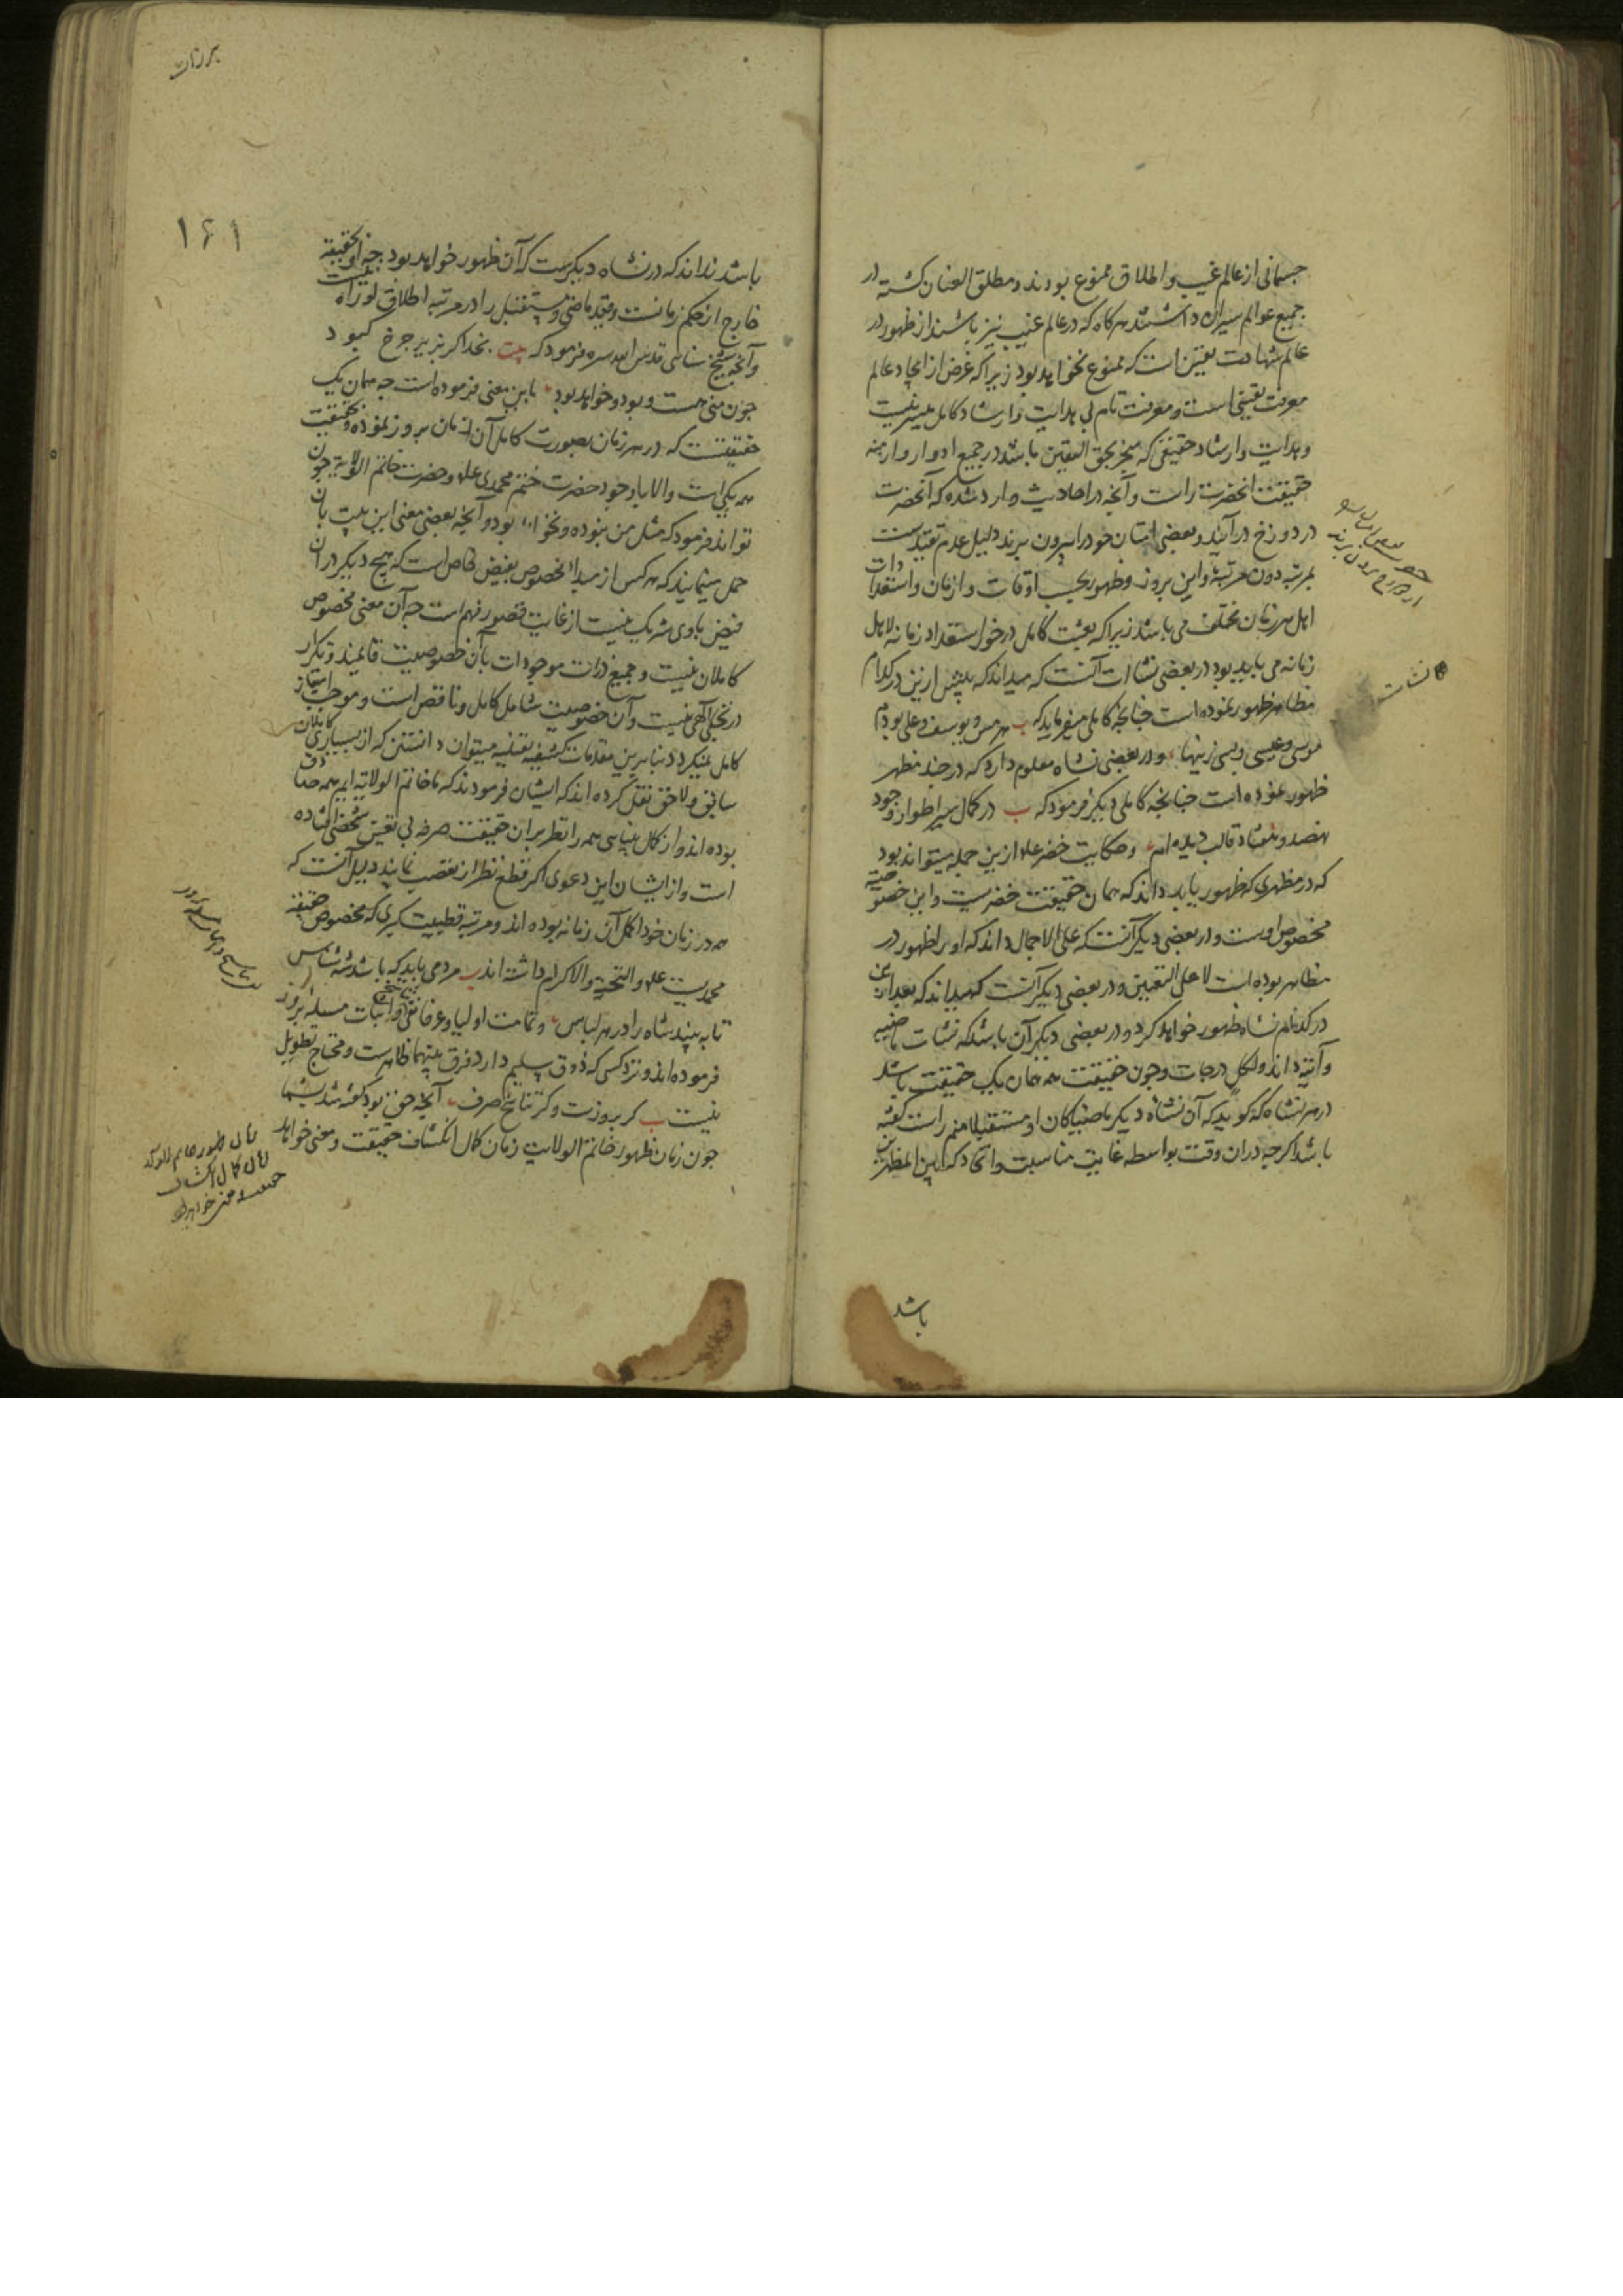 جسمانی از عالم غیب و اطلاق ممنوع بودند و مطلق العنان کشته در
جمیع عوالم سیران داشتند هرکاه که در عالم غیب نیز باشند از ظهور در
عالم شهادت یقین است که ممنوع نخواهد بود زیرا که غرض از ایجاد عالم
معرفت یقینی است و معرفت تام بی هدایت و ارشاد کامل میسر نیست
و هدایت و ارشاد حقیقی که منجر بحق الیقین باشد در جمیع ادوار و ازمنه
حقیقت آنحضرت راست و آنچه در احادیث وارد شده که آنحضرت
در دوزخ در آیند و بعضی امتان خود را بیرون برند دلیل عدم تقید است
بمرتبه دون مرتبه و این بروز و ظهور بحسب اوقات و ازمان و استعدادات
اهل هر زمان مختلف می باشد زیرا که بعثت کامل درخور استعداد زمانه لاهل
زمانه می باید بود در بعضی نشات آنست که میداند که پیش ازین در کدام
مظاهر ظهور نموده است چنانچه کاملی میفرماید که ب هرمس و یوسف و علی بودم
موسی و عیسی و بسی زینها و در بعضی نشاه معلوم دارد که در چند مظهر
ظهور نموده است چنانچه کاملی دیکر فرمود که ب در کمال سیر اطوار وجود
هفصد و هفتاد قالب دیده ام و حکایت خضر علم ازین جمله میتواند بود
که در مظهری که ظهور یابد داند که همان حقیقت خضریست و این خصوصیته
مخصوص اوست و در بعضی دیکر آنست که علی الاجمال داند که او را ظهور در
مظاهر بوده است لا علی التعیین و در بعضی دیکر آنست که میداند که بعد ازین
در کدام نشاه ظهور خواهد کرد و در بعضی دیکر آن باشد که نشات ماضیه
و آتیه داند و لکل درجات و چون حقیقت همه همان یک حقیقت باشد
در هر نشاه که کوید که آن نشاه دیکر ماضیا کان او مستقبلا منم راست کفته
باشد اکرچه در ان وقت بواسطه غایت مناسبت و اتحاد که بین المظهرین
باشد
نشات
۱۶۱
باشد نداند که در نشاه دیکرست که آن ظهور خواهد بود چه او بحقیقه
خارج از حکم زمانست و قید ماضی و مستقبل را در مرتبه اطلاق او راه نیست
و آنچه شیخ سنائی قدس الله سره فرمود که بیت بخدا کر بزیر چرخ کبود
چون منی هست و بود و خواهد بود باین معنی فرموده است چه همان یک
حقیقتست که در هر زمان بصورت کامل آن زمان بروز نموده و حقیقت
همه یکی است و الا با وجود حضرت ختم محمدی علم و حضرت خاتم الولایة چون
تواند فرمود که مثل من نبوده و نخواهد بود و آنچه بعضی معنی این بیت بان
حمل مینمایند که هر کس از مبدا مخصوص بفیض خاص است که هیچ دیکر در ان
فیض با وی شریک نیست از غایت قصور فهم است چه آن معنی مخصوص
کاملان نیست و جمیع ذرات موجودات بآن خصوصیت قائمند و تکرار
در تجلی الهی نیست و آن خصوصیت شامل کامل و ناقص است و موجب امتیاز
کامل نمیکردد بنابرین مقدمات کشفیه یقینیه میتوان دانستن که از بسیاری کاملان
سابق و لاحق نقل کرده اند که ایشان فرمودند که ما خاتم الولایة ایم همه صادق
بوده اند و از کمال شناسی همه را نظر بران حقیقت صرفه بی تعین شخصی افتاده
است و از ایشان این دعوی اکر قطع نظر از تعصب نمایند دلیل آنست که
همه در زمان خود اکمل آن زمانه بوده اند و مرتبه قطبیت کبری که مخصوص حقیقة
محمدیست علم و التحیة و الاکرام داشته اند ب مردمی باید که باشد شه شناس
تا به بیند شاه را در هر لباس و تمامت اولیا و عرفا نفی تناسخ و اثبات مسیله بروز
فرموده اند و نزد کسی که ذوق سلیم دارد فرق بینهما ظاهرست و محتاج تطویل
نیست ب کر بروزست و کر تناسخ صرف آنچه حق بود کفته شد بشما
چون زمان ظهور خاتم الولایت زمان کمال انکشاف حقیقت و معنی خواهد